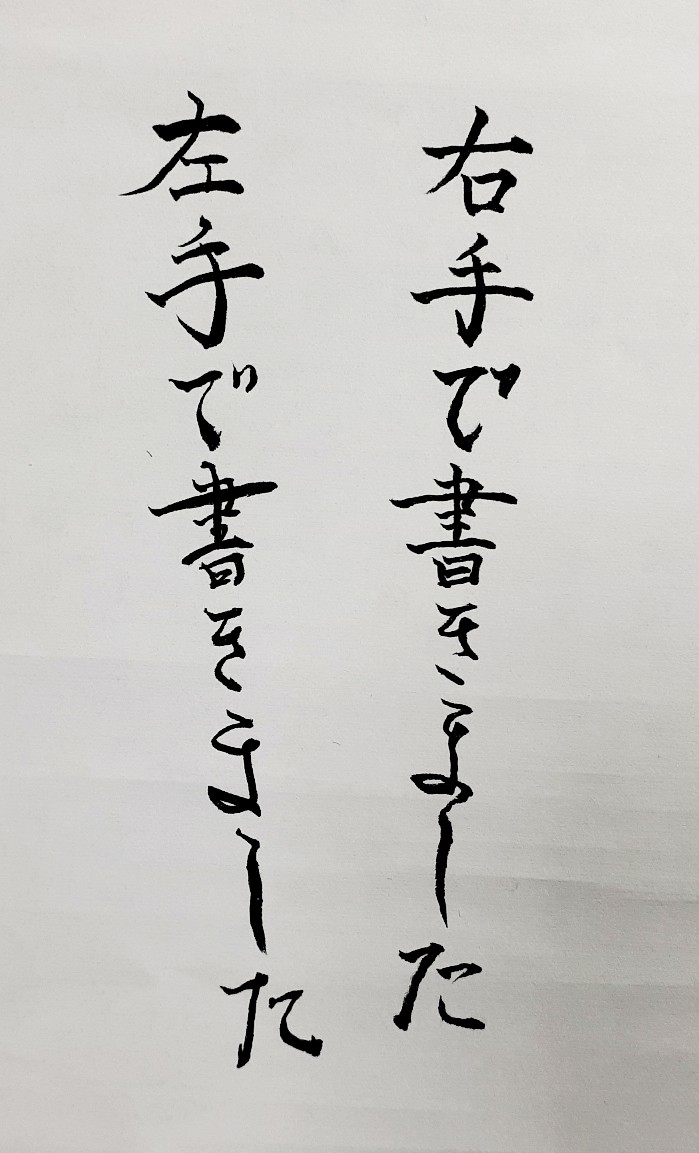 右手で書きました
左手で書きました